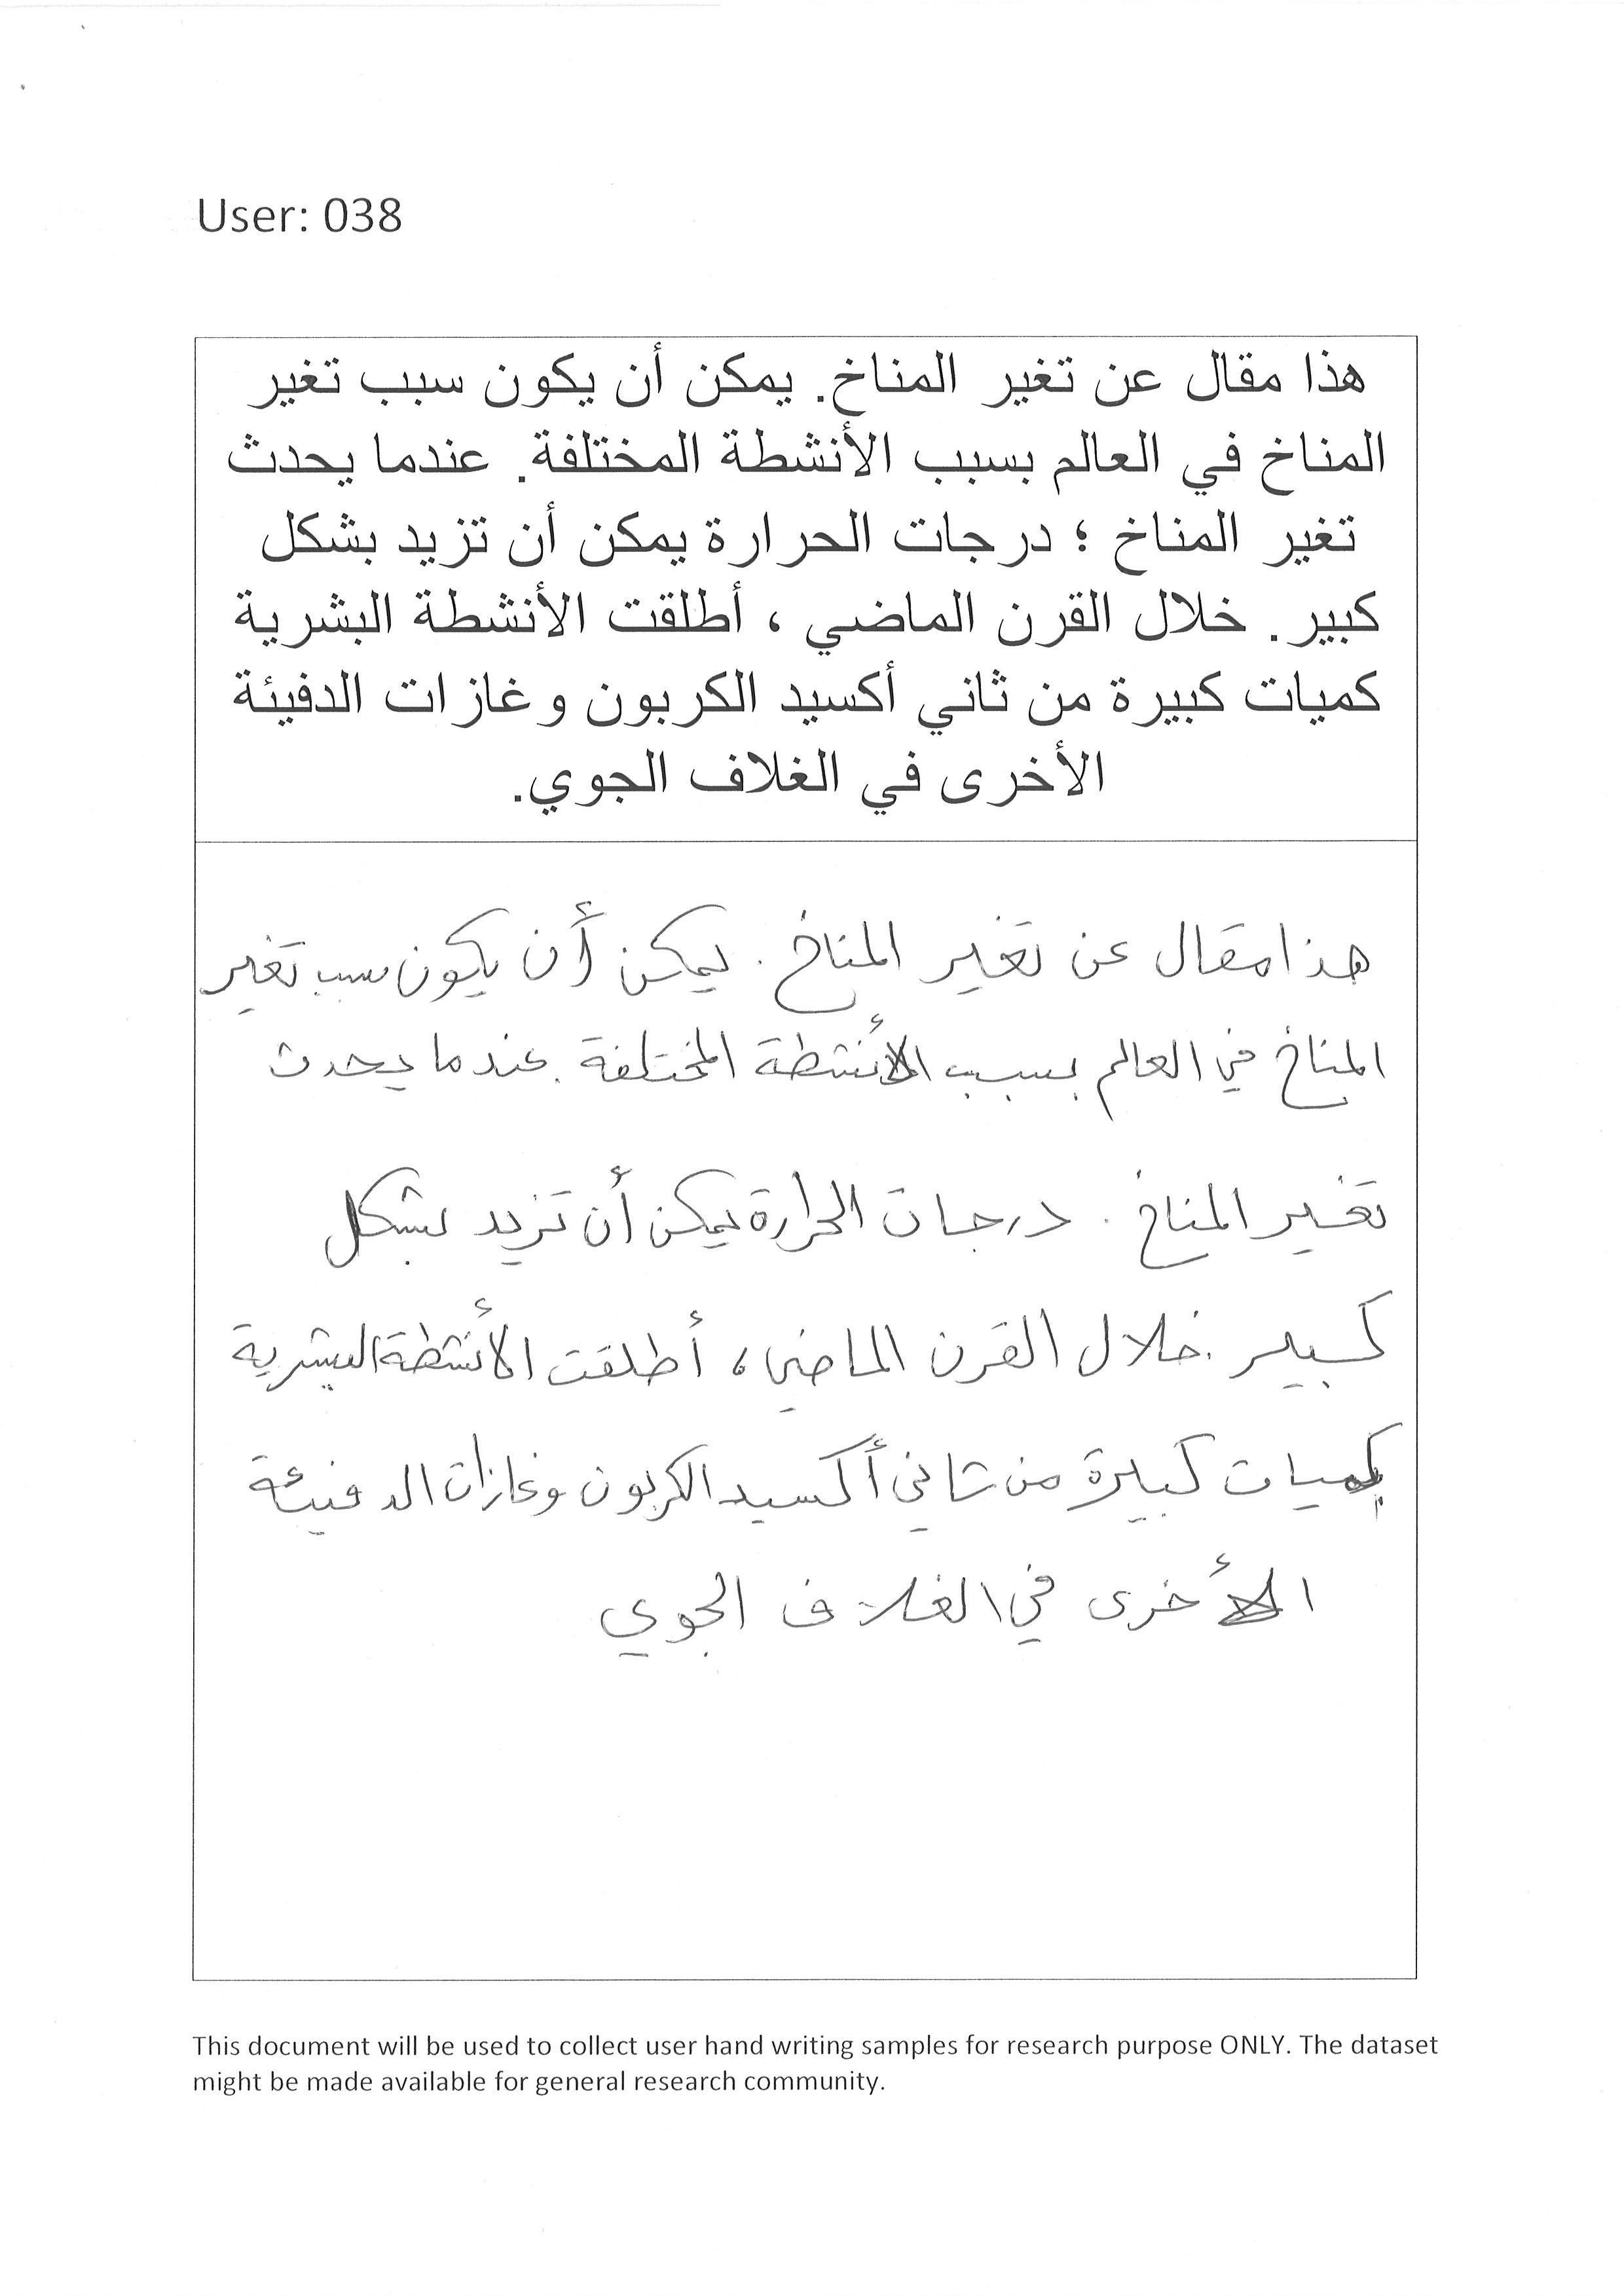 User: 038
هذا مقال عن تغير المناخ. يمكن أن يكون سبب تغير
المناخ في العالم بسبب الأنشطة المختلفة. عندما يحدث
تغير المناخ ؛ درجات الحرارة يمكن أن تزيد بشكل
كبير. خلال القرن الماضي ، أطلقت الأنشطة البشرية
كميات كبيرة من ثاني أكسيد الكربون و غازات الدفيئة
الأخرى في الغلاف الجوي.
هذا مقال عن تغير المناخ . يمكن أن يكون سبب تغير
المناخ في العالم بسبب الأنشطة المختلفة . عندما يحدث
تغير المناخ . درجات الحرارة يمكن أن تزيد بشكل
كبير . خلال القرن الماضي ، أطلقت الأنشطة البشرية
كميات كبيرة من ثاني أكسيد الكربون و غازات الدفيئة
الأخرى في الغلاف الجوي
This document will be used to collect user hand writing samples for research purpose ONLY. The dataset
might be made available for general research community.